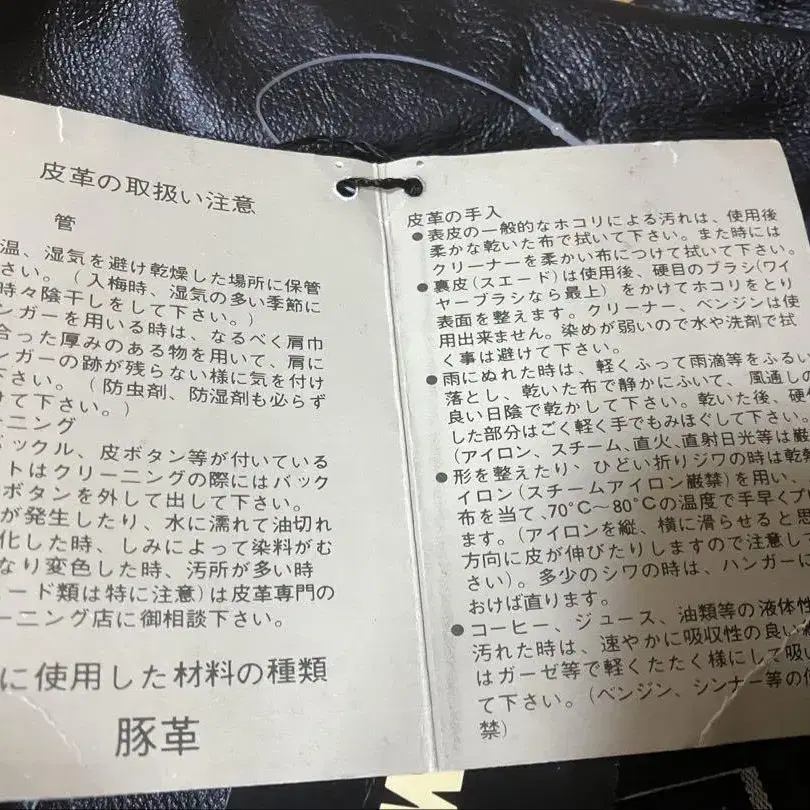 皮革の取扱い注意
管
温、湿気を避け乾燥した場所に保管
さい。（入梅時、湿気の多い季節に
時々陰干しをして下さい。）
ンガーを用いる時は、なるべく肩巾
合った厚みのある物を用いて、肩に
ンガーの跡が残らない様に気を付け
下さい。（防虫剤、防湿剤も必らず
けて下さい。）
ーニング
バックル、皮ボタン等が付いている
トはクリーニングの際にはバック
ボタンを外して出して下さい。
が発生したり、水に濡れて油切れ
化した時、しみによって染料がむ
なり変色した時、汚所が多い時
ード類は特に注意）は皮革専門の
ーニング店に御相談下さい。
に使用した材料の種類
豚革
皮革の手入
●表皮の一般的なホコリによる汚れは、使用後
柔かな乾いた布で拭いて下さい。また時には
クリーナーを柔かい布につけて拭いて下さい。
●裏皮（スエード）は使用後、硬目のブラシ（ワイ
ヤーブラシなら最上）をかけてホコリをとり
表面を整えます。クリーナー、ベンジンは使
用出来ません。染めが弱いので水や洗剤で拭
く事は避けて下さい。
●雨にぬれた時は、軽くふって雨滴等をふるい
落とし、乾いた布で静かにふいて、風通しの
良い日陰で乾かして下さい。乾いた後、硬
した部分はごく軽く手でもみほぐして下さい。
（アイロン、スチーム、直火、直射日光等は厳
●形を整えたり、ひどい折りジワの時は乾熱
イロン（スチームアイロン厳禁）を用い、
布を当て、70℃〜80℃の温度で手早くプ
ます。（アイロンを縦、横に滑らせると思
方向に皮が伸びたりしますので注意して
さい）。多少のシワの時は、ハンガーに
おけば直ります。
●コーヒー、ジュース、油類等の液体性
汚れた時は、速やかに吸収性の良い
はガーゼ等で軽くたたく様にして吸い
て下さい。（ベンジン、シンナー等の使
禁）